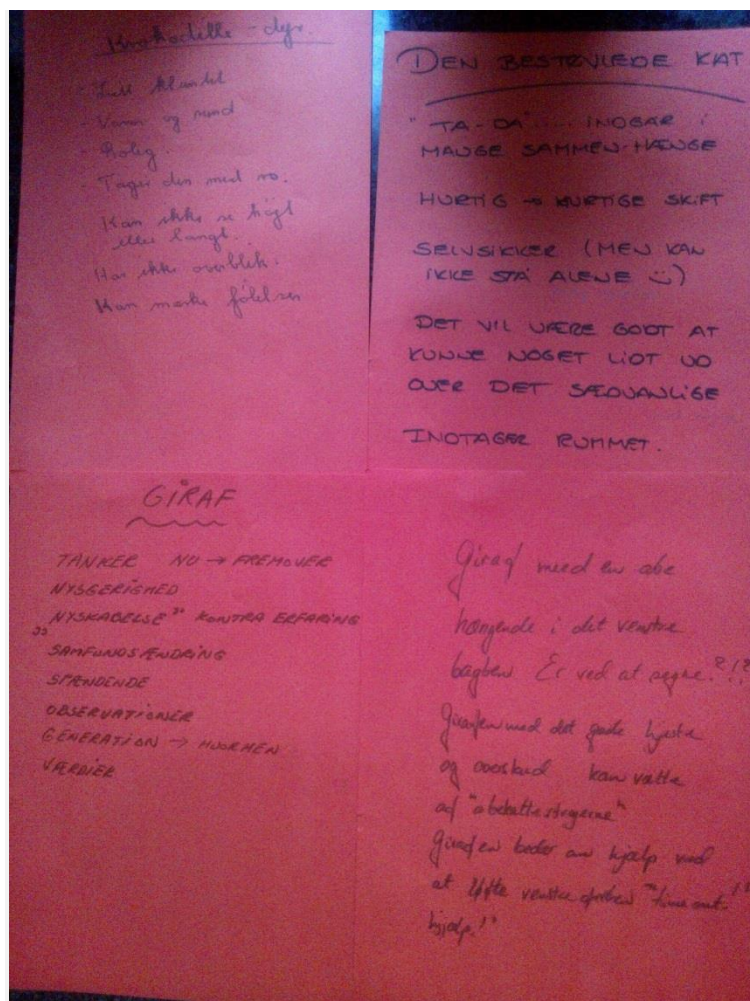 Krokodille - dyr.
- Lidt klumpet
- Varm og rund
- Rolig.
- Tager den med ro.
Kan ikke se højt
eller langt.
Har ikke overblik.
Kan mærke følelser
DEN BESTØVLEDE KAT
"TA-DA".... INDGÅR I
MANGE SAMMEN-HÆNGE
HURTIG → HURTIGE SKIFT
SELVSIKKER (MEN KAN
IKKE STÅ ALENE :))
DET VIL VÆRE GODT AT
KUNNE NOGET LIDT UD
OVER DET SÆDVANLIGE
INDTAGER RUMMET.
GIRAF
TANKER NU → FREMOVER
NYSGERIGHED
"NYSKABELSE" KONTRA ERFARING
SAMFUNDSÆNDRING
SPÆNDENDE
OBSERVATIONER
GENERATION → HVORHEN
VÆRDIER
Giraf med en abe
hængende i det venstre
bagben Er ved at segne?!?
Giraffen med det gode hjerte
og overskud kan
af
Giraffen beder om hjælp ved
at løfte venstre "time out-
hjælp!"